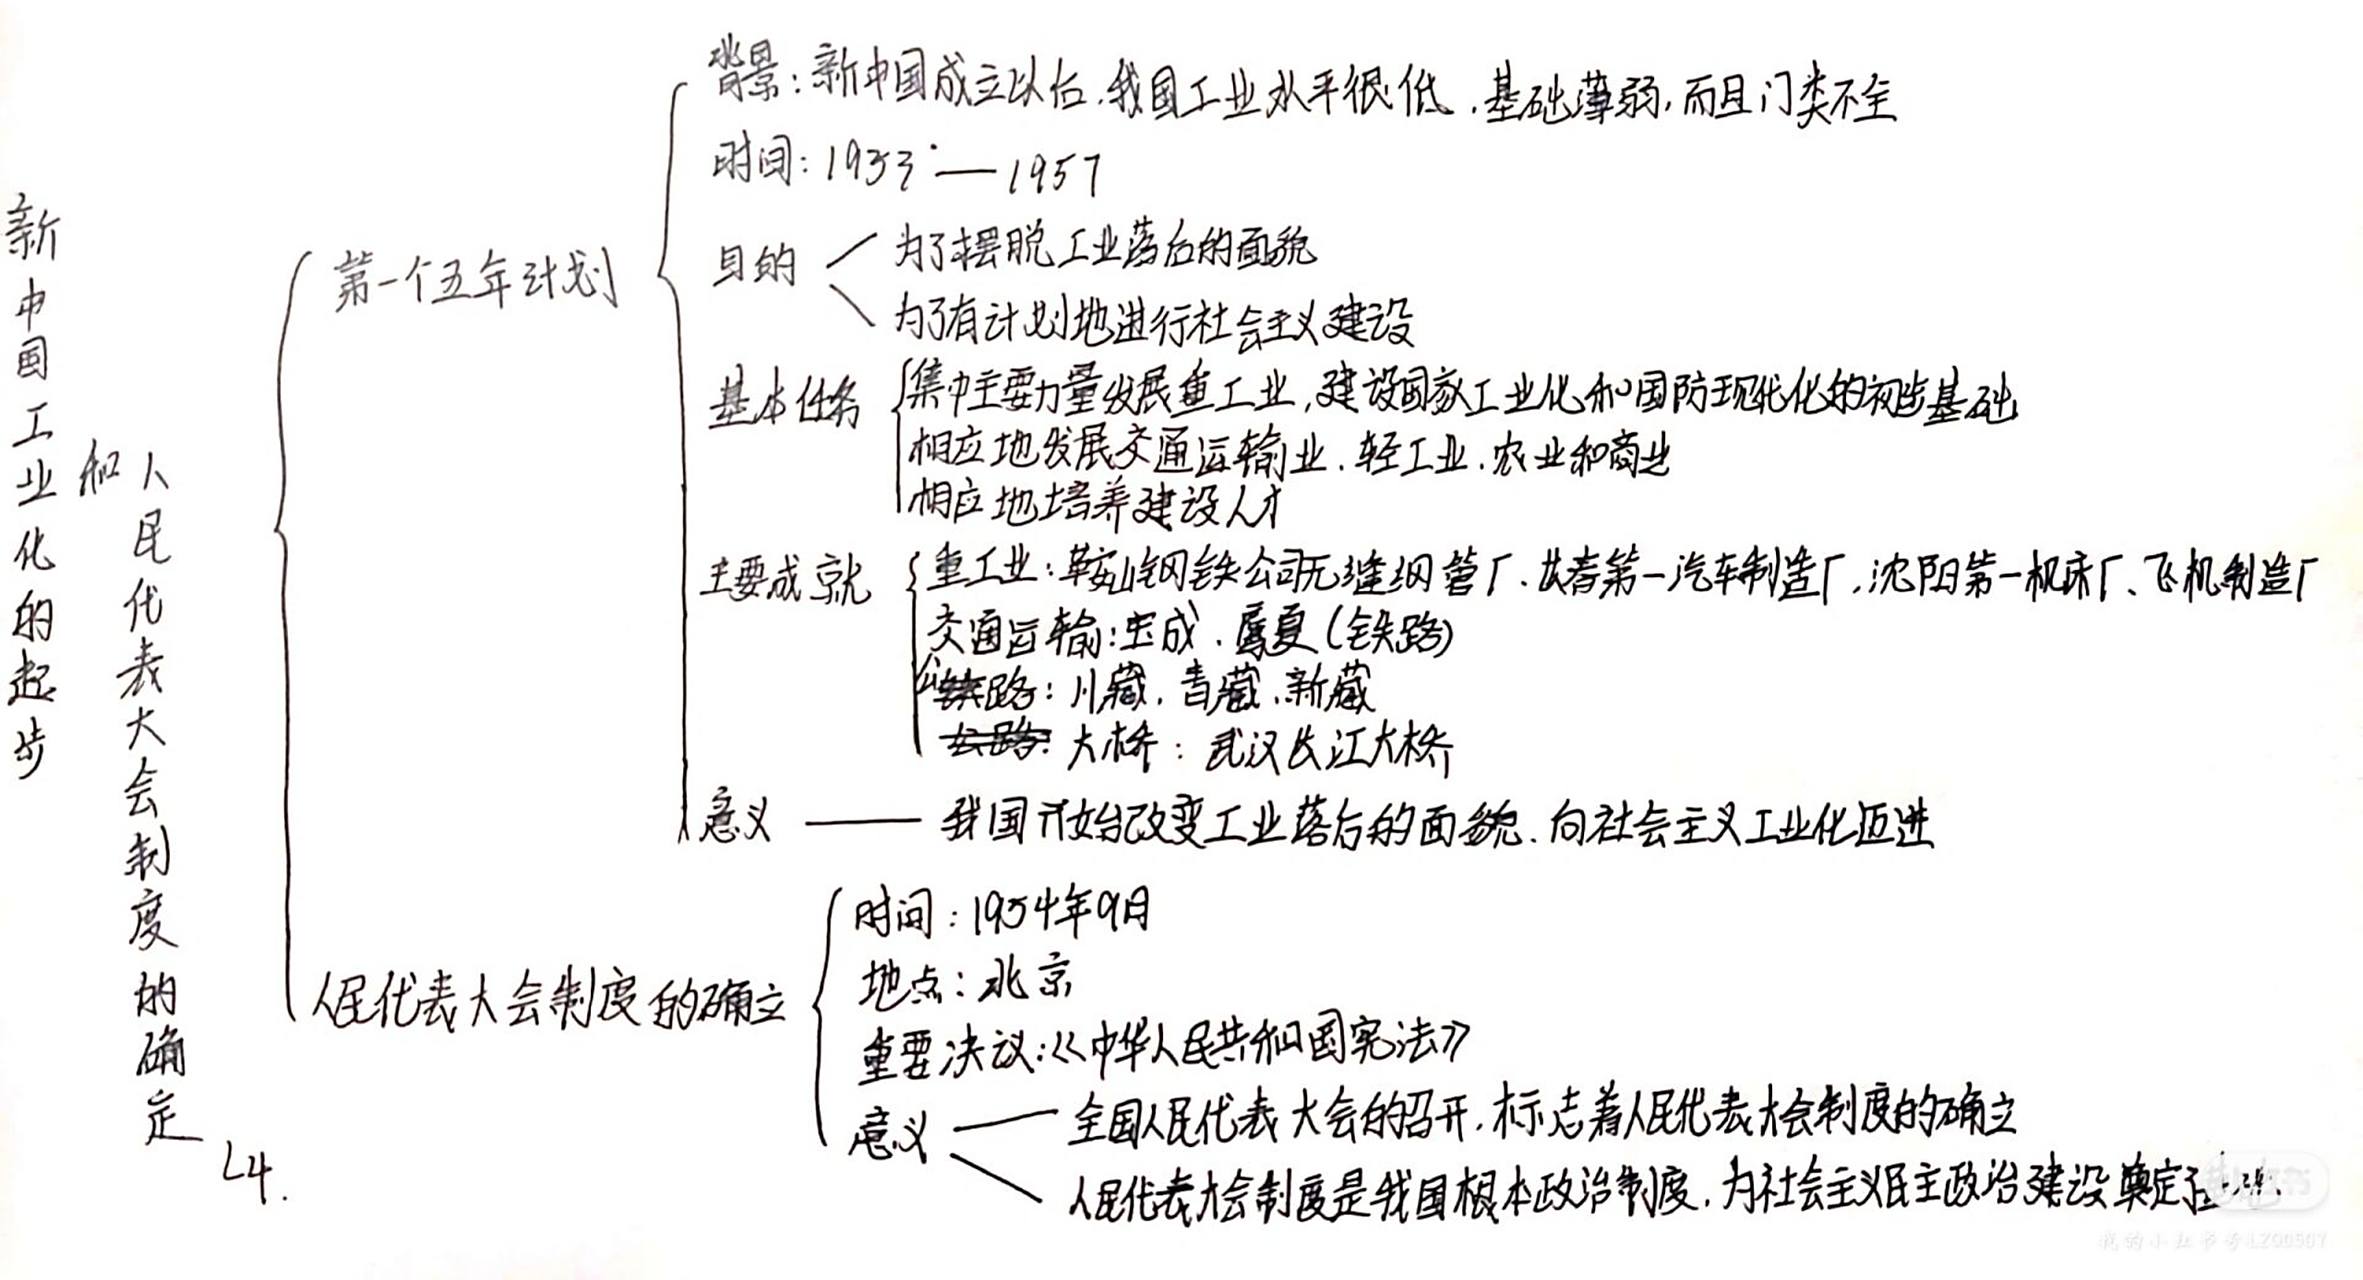 新中国工业化的起步
和
人民代表大会制度的确定
L4.
第一个五年计划
背景：新中国成立以后,我国工业水平很低,基础薄弱,而且门类不全
时间：1953 — 1957
目的
为了摆脱工业落后的面貌
为了有计划地进行社会主义建设
基本任务
集中主要力量发展重工业,建设国家工业化和国防现代化的初步基础
相应地发展交通运输业、轻工业、农业和商业
相应地培养建设人才
主要成就
重工业：鞍山钢铁公司无缝钢管厂、长春第一汽车制造厂,沈阳第一机床厂、飞机制造厂
交通运输：宝成、鹰厦(铁路)
公路：川藏,青藏,新藏
大桥：武汉长江大桥
意义 —— 我国开始改变工业落后的面貌、向社会主义工业化迈进
人民代表大会制度的确立
时间：1954年9月
地点：北京
重要决议：《中华人民共和国宪法》
意义
全国人民代表大会的召开,标志着人民代表大会制度的确立
人民代表大会制度是我国根本政治制度,为社会主义民主政治建设奠定了
我的小红书号:LZQ0507